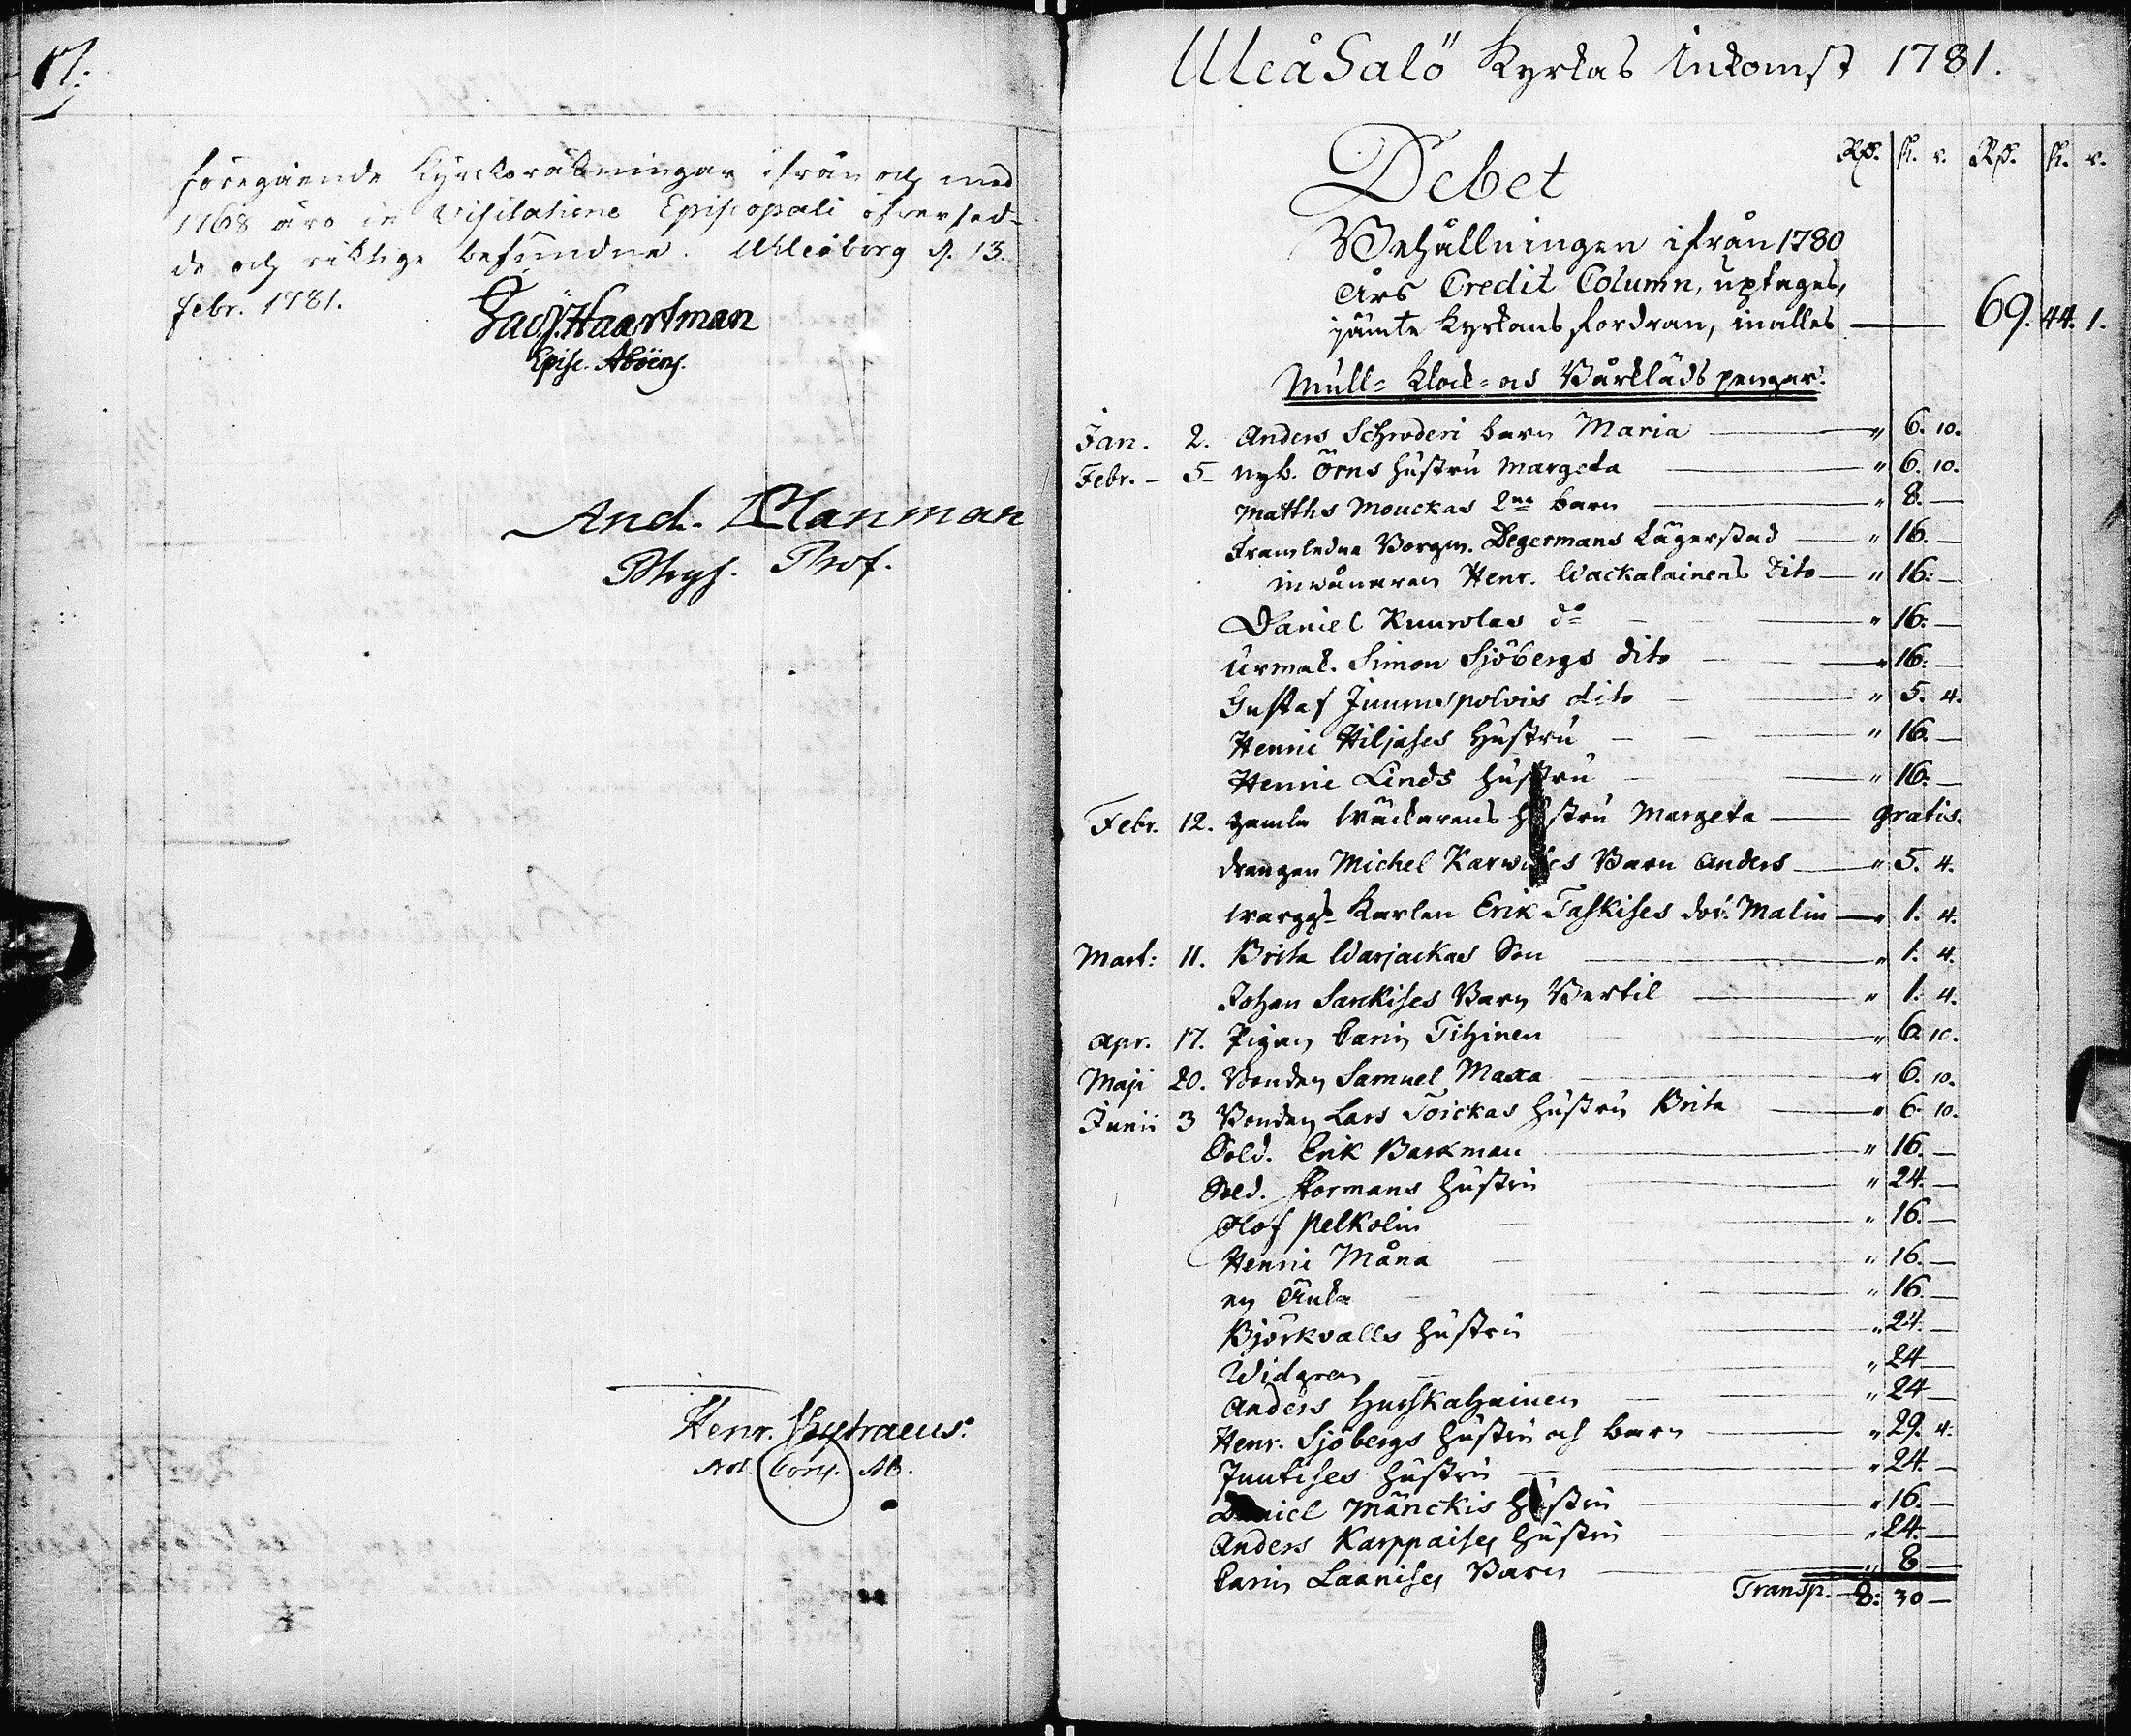 17.
föregående Kyrckoräkningar ifrån och med
1768 äro in Visitatione Episcopali öfversed-
de och riktige befundne. Uhleåborg d. 13.
febr. 1781.
Jac. Haartman
Episc. Aboëns.
And. Planman
Phys. Prof.
Henr. Hytraeus.
Not. Cons. Ab.
UleåSalö Kyrkas Inkomst 1781.
Debet
Rd. sk. r. Rd. sk. r.
Behållningen ifrån 1780
Års Credit Column, uptages,
jämte Kyrkans fordran, inalles — 69. 44. 1.
Mull= Klock= och Bårkläds pengar.
Jan. 2. Anders Schroderi barn Maria — " 6. 10.
Febr. - 5 - nyb. Örns hustru Margeta — " 6. 10.
Matths Mouckas 2ne barn — " 8. —
Framledne Borgm. Degermans Lägerstad — " 16. —
inwånaren Henr. Wackalainens dito — " 16. —
Daniel Kuurolas do — " 16. —
Urmak. Simon Sjöbergs dito — " 16. —
Gustaf Juumespolvis dito — " 5. 4.
Henric Hiljases Hustru — " 16. —
Henric Linds hustru — " 16. —
Febr. 12. gamla Wäckarens hustru Margeta — gratis.
drengen Michel Karwises Barn Anders — " 5. 4.
warggs Karlen Erik Taskises dotr Malin — " 1. 4.
Mart: 11. Brita Warjackas Son — " 1. 4.
Johan Sankises Barn Bertil — " 1. 4.
Apr. 17. Pigan Carin Tihinen — " 6. 10.
Maji 20. Bonden Samuel Maxa — " 6. 10.
Junii 3 Bonden Lars Toickas hustru Brita — " 6. 10.
Sold. Erik Barkman — " 16. —
Sold. Stormans hustru — " 24. —
Olof Pelkolin — " 16. —
Henric Måna — " 16. —
en Änka — " 16. —
Björkvalls hustru — " 24. —
Widgren — " 24 —
Anders Huiskahainen — " 24 —
Henr. Sjöbergs hustru och barn — " 29. 4.
Juutises hustru — " 24. —
Daniel Mänckis hustru — " 16. —
Anders Karppaises hustru — " 24. —
Carin Laanises Barn — " 8 —
Transp. — 8: 30 —